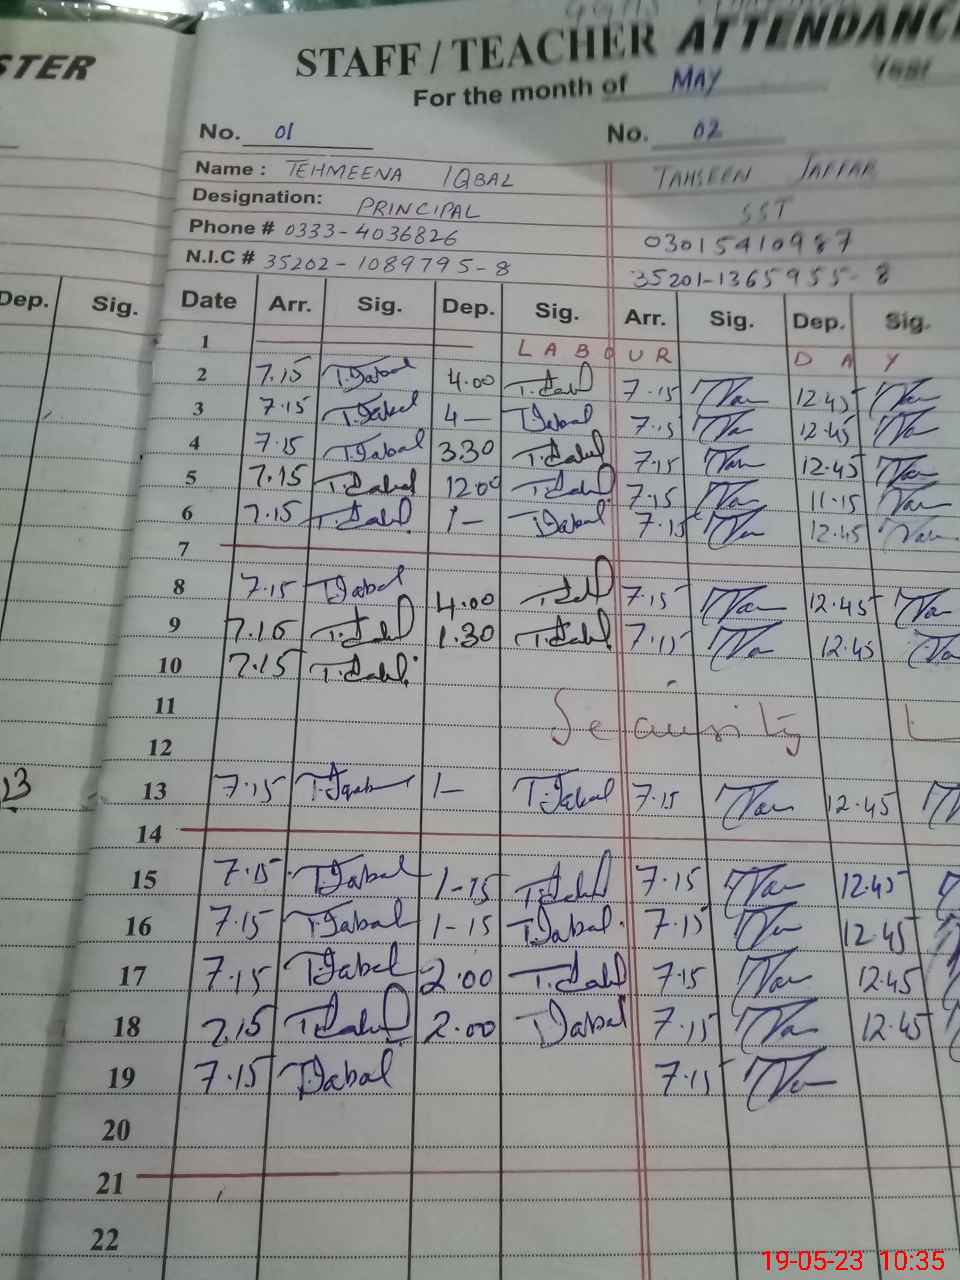 STER
STAFF / TEACHER ATTENDANC
For the month of MAY
No. 01 No. 02
Name : TEHMEENA IQBAL TAHSEEN JAFFAR
Designation: PRINCIPAL SST
Phone # 0333-4036826 03015410987
N.I.C # 35202-1089795-8 35201-1365955-8
Dep. Sig. Date Arr. Sig. Dep. Sig. Arr. Sig. Dep. Sig.
1 LABOUR DAY
2 7.15 T.Iqbal 4.00 T.Iqbal 7.15 12.45
3 7.15 T.Iqbal 4- T.Iqbal 7.15 12.45
4 7.15 T.Iqbal 3.30 T.Iqbal 7.15 12.45
5 7.15 T.Iqbal 12.00 T.Iqbal 7.15 11.15
6 7.15 T.Iqbal 1- T.Iqbal 7.15 12.45
7
8 7.15 T.Iqbal 4.00 T.Iqbal 7.15 12.45
9 7.15 T.Iqbal 1.30 T.Iqbal 7.15 12.45
10 7.15 T.Iqbal
11 Security
12
13 7.15 T.Iqbal 1- T.Iqbal 7.15 12.45
14
15 7.15 T.Iqbal 1-15 T.Iqbal 7.15 12.45
16 7.15 T.Iqbal 1-15 T.Iqbal 7.15 12.45
17 7.15 T.Iqbal 2.00 T.Iqbal 7.15 12.45
18 7.15 T.Iqbal 2.00 T.Iqbal 7.15 12.45
19 7.15 T.Iqbal 7.15
20
21
22
19-05-23 10:35